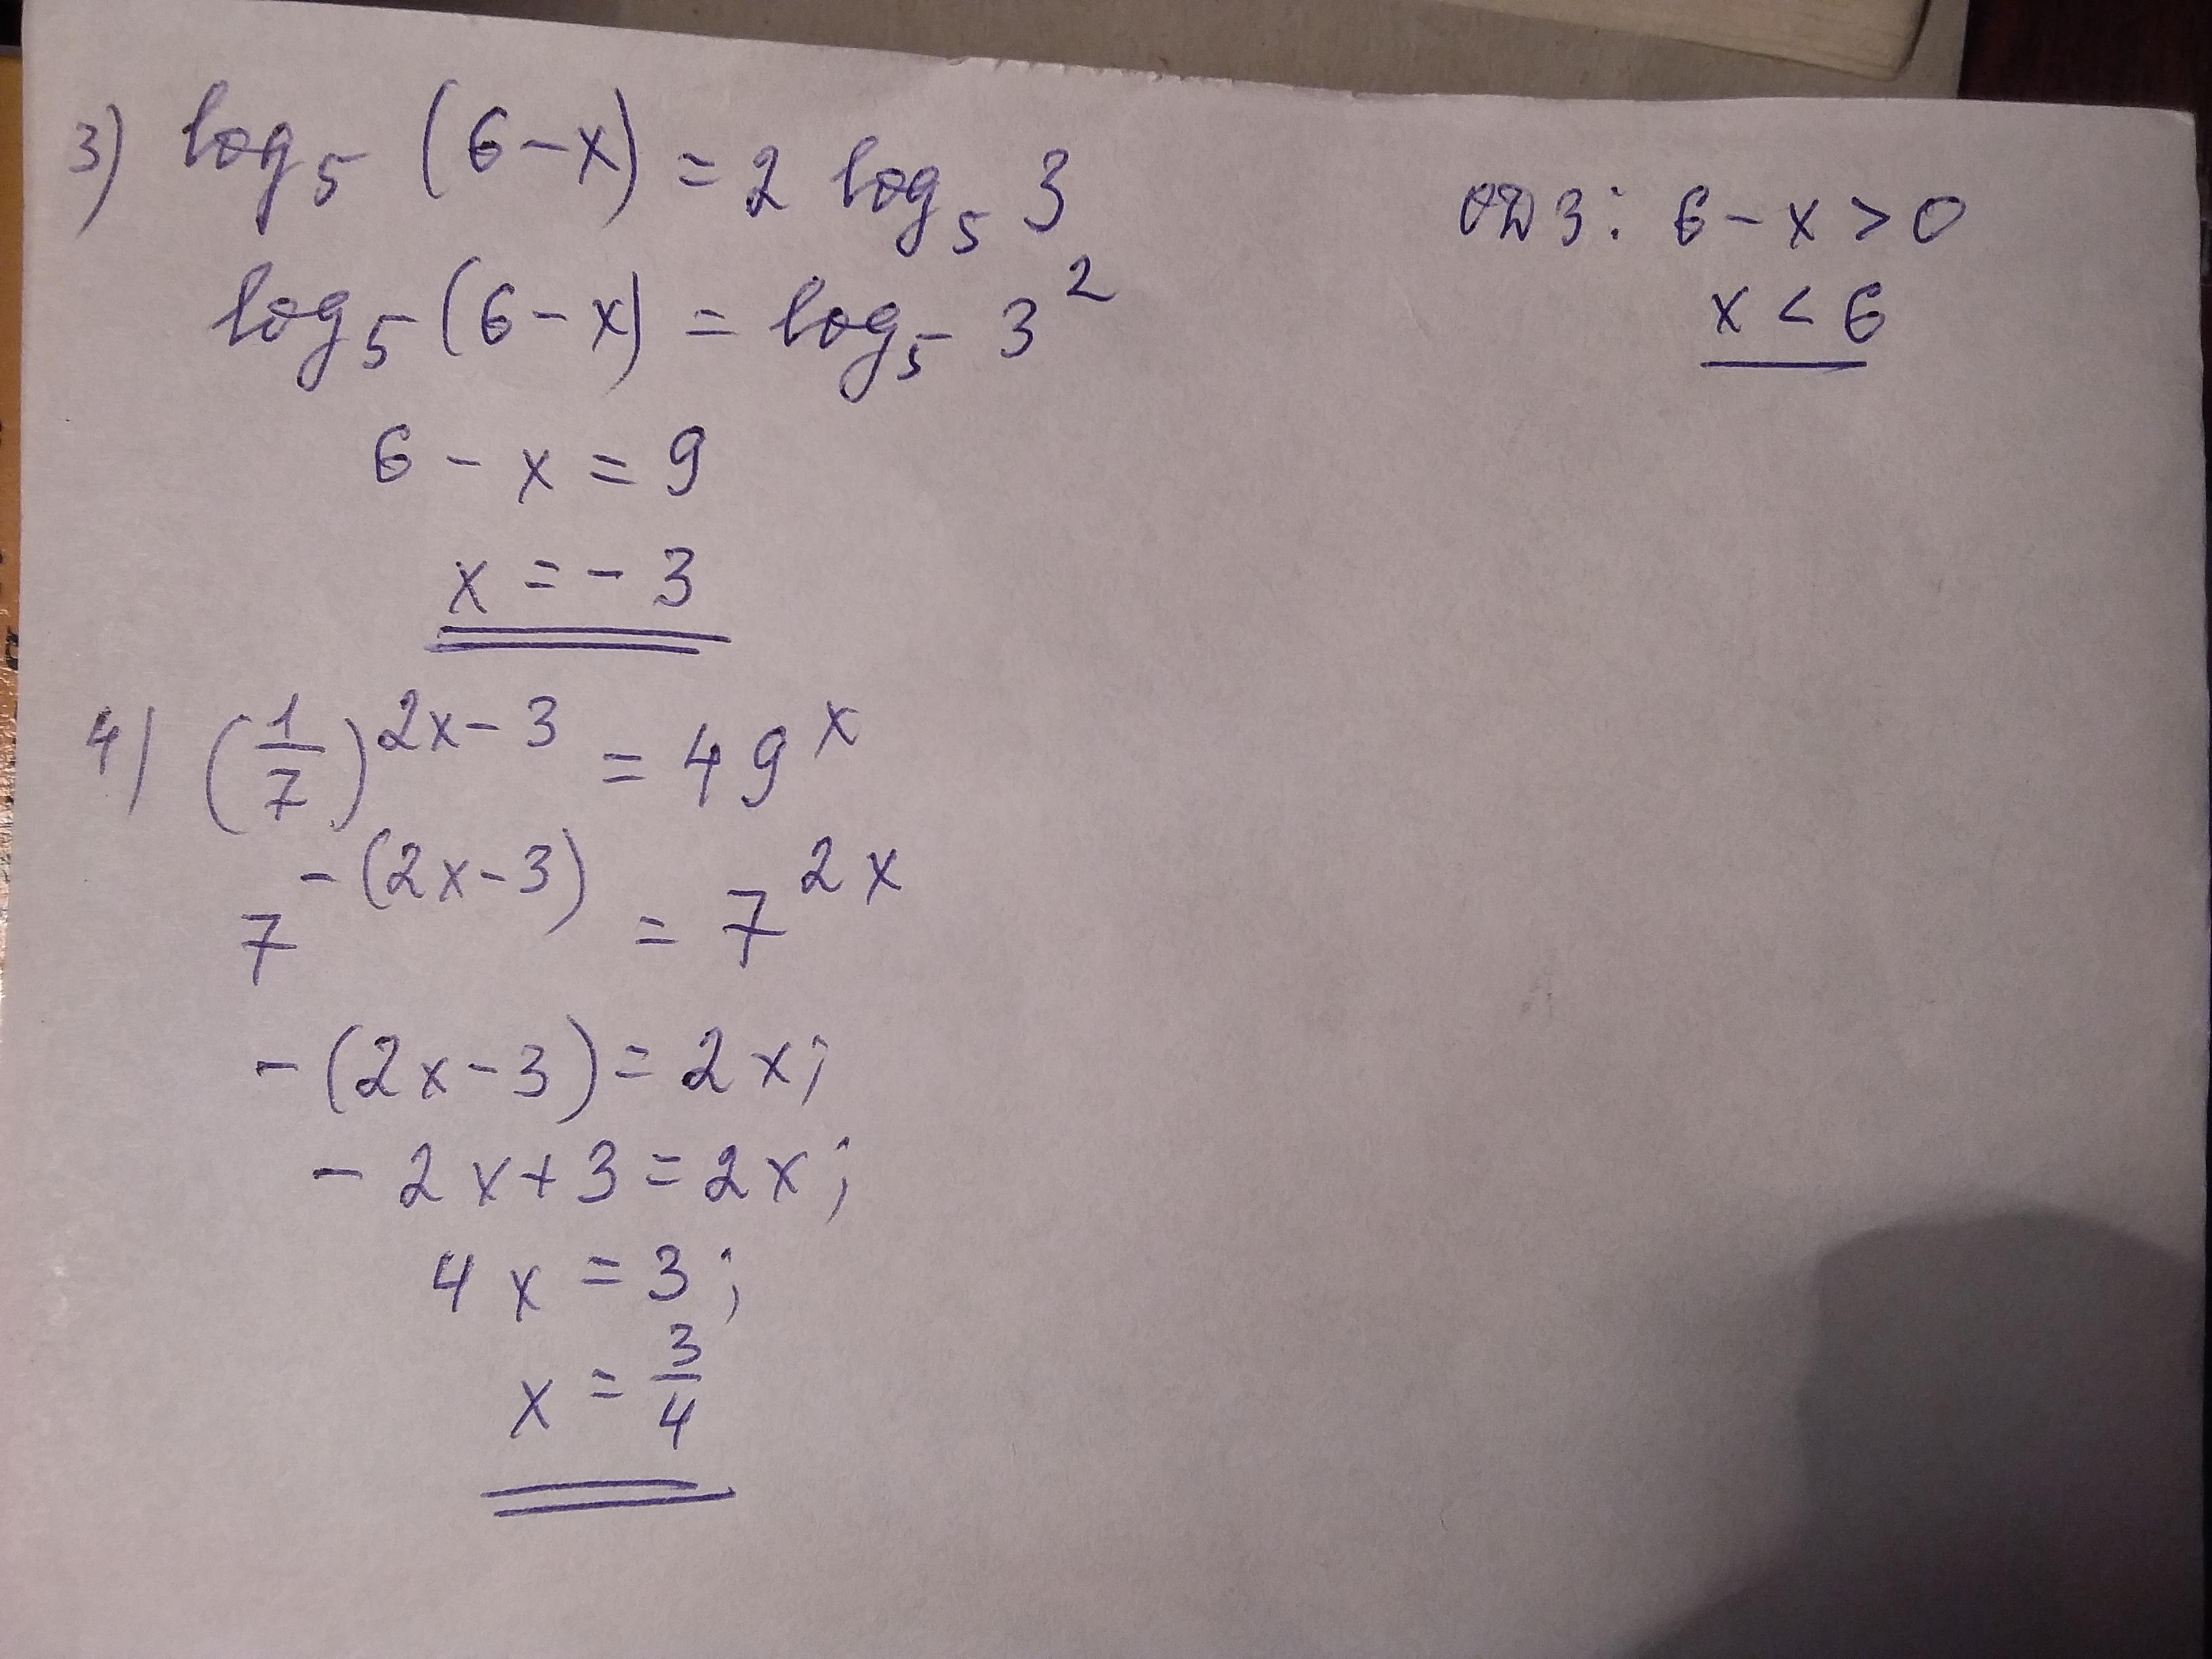 3) log₅ (6-x) = 2 log₅ 3
ОДЗ: 6-x>0
log₅(6-x) = log₅ 3²
x < 6
6 - x = 9
x = - 3
4) (1/7)^(2x-3) = 49^x
7^(-(2x-3)) = 7^(2x)
-(2x-3) = 2x;
- 2x+3 = 2x;
4x = 3;
x = 3/4